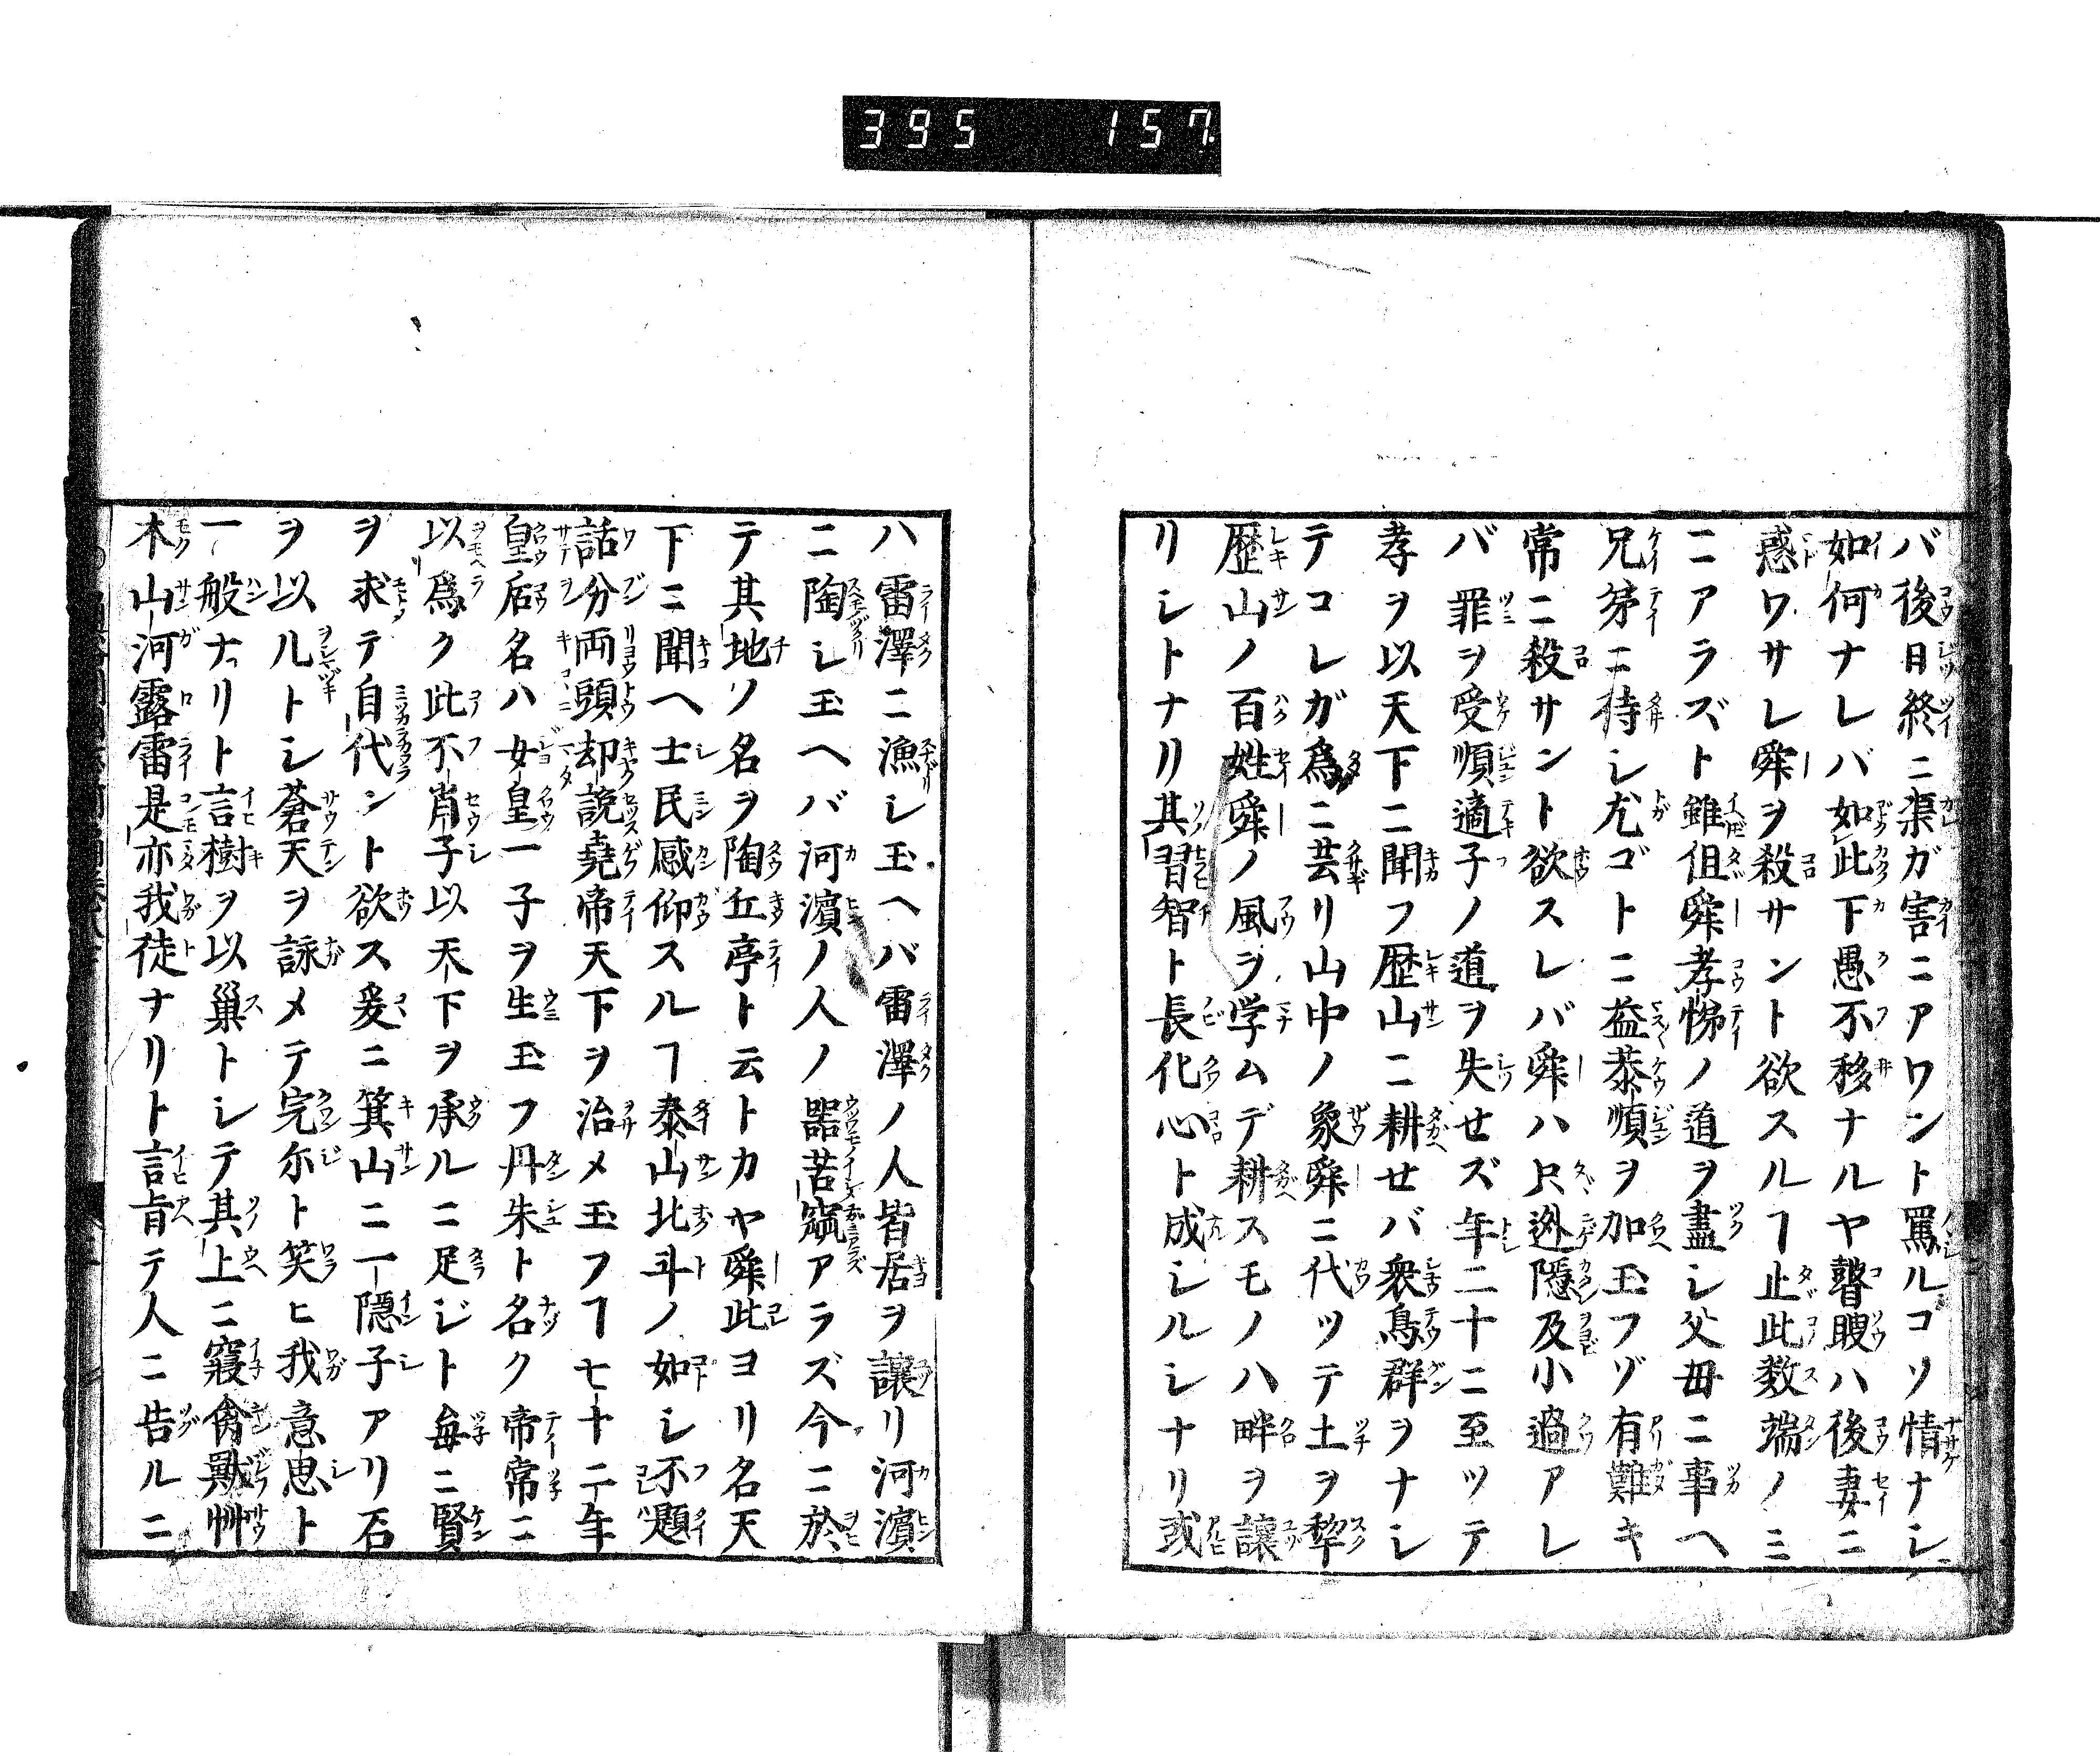 395 157
バ後日終ニ渠ガ害ニアワント罵ルコソ情ナシ
如何ナレバ如此下愚不移ナルヤ瞽瞍ハ後妻ニ
惑ワサレ舜ヲ殺サント欲スルヿ止此数端ノミ
ニアラズト雖伹舜孝悌ノ道ヲ盡シ父毋ニ事ヘ
兄弟ニ待シ尤ゴトニ益恭順ヲ加玉フゾ有難キ
常ニ殺サント欲スレバ舜ハ只迯隠及小過アレ
バ罪ヲ受順適子ノ道ヲ失せズ年二十ニ至ッテ
孝ヲ以天下ニ聞フ歴山ニ耕せバ衆鳥群ヲナシ
テコレガ爲ニ芸リ山中ノ象舜ニ代ッテ土ヲ犂
歴山ノ百姓舜ノ風ヲ学ムデ耕スモノハ畔ヲ讓
リシトナリ其習智ト長化心ト成シルシナリ或
ハ雷澤ニ漁シ玉ヘバ雷澤ノ人皆居ヲ讓リ河濵
ニ陶シ玉ヘバ河濵ノ人ノ噐苦窳アラズ今ニ於
テ其地ノ名ヲ陶丘亭ト云トカヤ舜此ヨリ名天
下ニ聞ヘ士民感仰スルヿ泰山北斗ノ如シ不題
話分両頭却說堯帝天下ヲ治メ玉フヿ七十二年
皇后名ハ女皇一子ヲ生玉フ丹朱ト名ク帝常ニ
以爲ク此不肖子以天下ヲ承ルニ足ジト毎ニ賢
ヲ求テ自代ント欲ス爰ニ箕山ニ一隠子アリ石
ヲ以几トシ蒼天ヲ詠メテ完尓ト笑ヒ我意思ト
一般ナリト言樹ヲ以巢トシテ其上ニ寢禽獸艸
木山河露雷是亦我徒ナリト言肯テ人ニ告ルニ